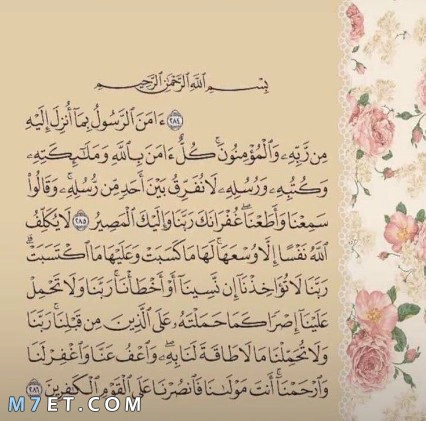 بِسْمِ اللَّهِ الرَّحْمَٰنِ الرَّحِيمِ
٢٨٤ ءَامَنَ الرَّسُولُ بِمَا أُنزِلَ إِلَيْهِ
مِن رَّبِّهِ وَالْمُؤْمِنُونَ ۚ كُلٌّ ءَامَنَ بِاللَّهِ وَمَلَٰٓئِكَتِهِ
وَكُتُبِهِ وَرُسُلِهِ لَا نُفَرِّقُ بَيْنَ أَحَدٍ مِّن رُّسُلِهِ ۚ وَقَالُوا
سَمِعْنَا وَأَطَعْنَا ۖ غُفْرَانَكَ رَبَّنَا وَإِلَيْكَ الْمَصِيرُ ٢٨٥ لَا يُكَلِّفُ
اللَّهُ نَفْسًا إِلَّا وُسْعَهَا ۚ لَهَا مَا كَسَبَتْ وَعَلَيْهَا مَا اكْتَسَبَتْ ۗ
رَبَّنَا لَا تُؤَاخِذْنَا إِن نَّسِينَا أَوْ أَخْطَأْنَا ۚ رَبَّنَا وَلَا تَحْمِلْ
عَلَيْنَا إِصْرًا كَمَا حَمَلْتَهُ عَلَى الَّذِينَ مِن قَبْلِنَا ۚ رَبَّنَا
وَلَا تُحَمِّلْنَا مَا لَا طَاقَةَ لَنَا بِهِ ۖ وَاعْفُ عَنَّا وَاغْفِرْ لَنَا
وَارْحَمْنَا ۚ أَنتَ مَوْلَىٰنَا فَانصُرْنَا عَلَى الْقَوْمِ الْكَٰفِرِينَ ٢٨٦
M7ET.COM